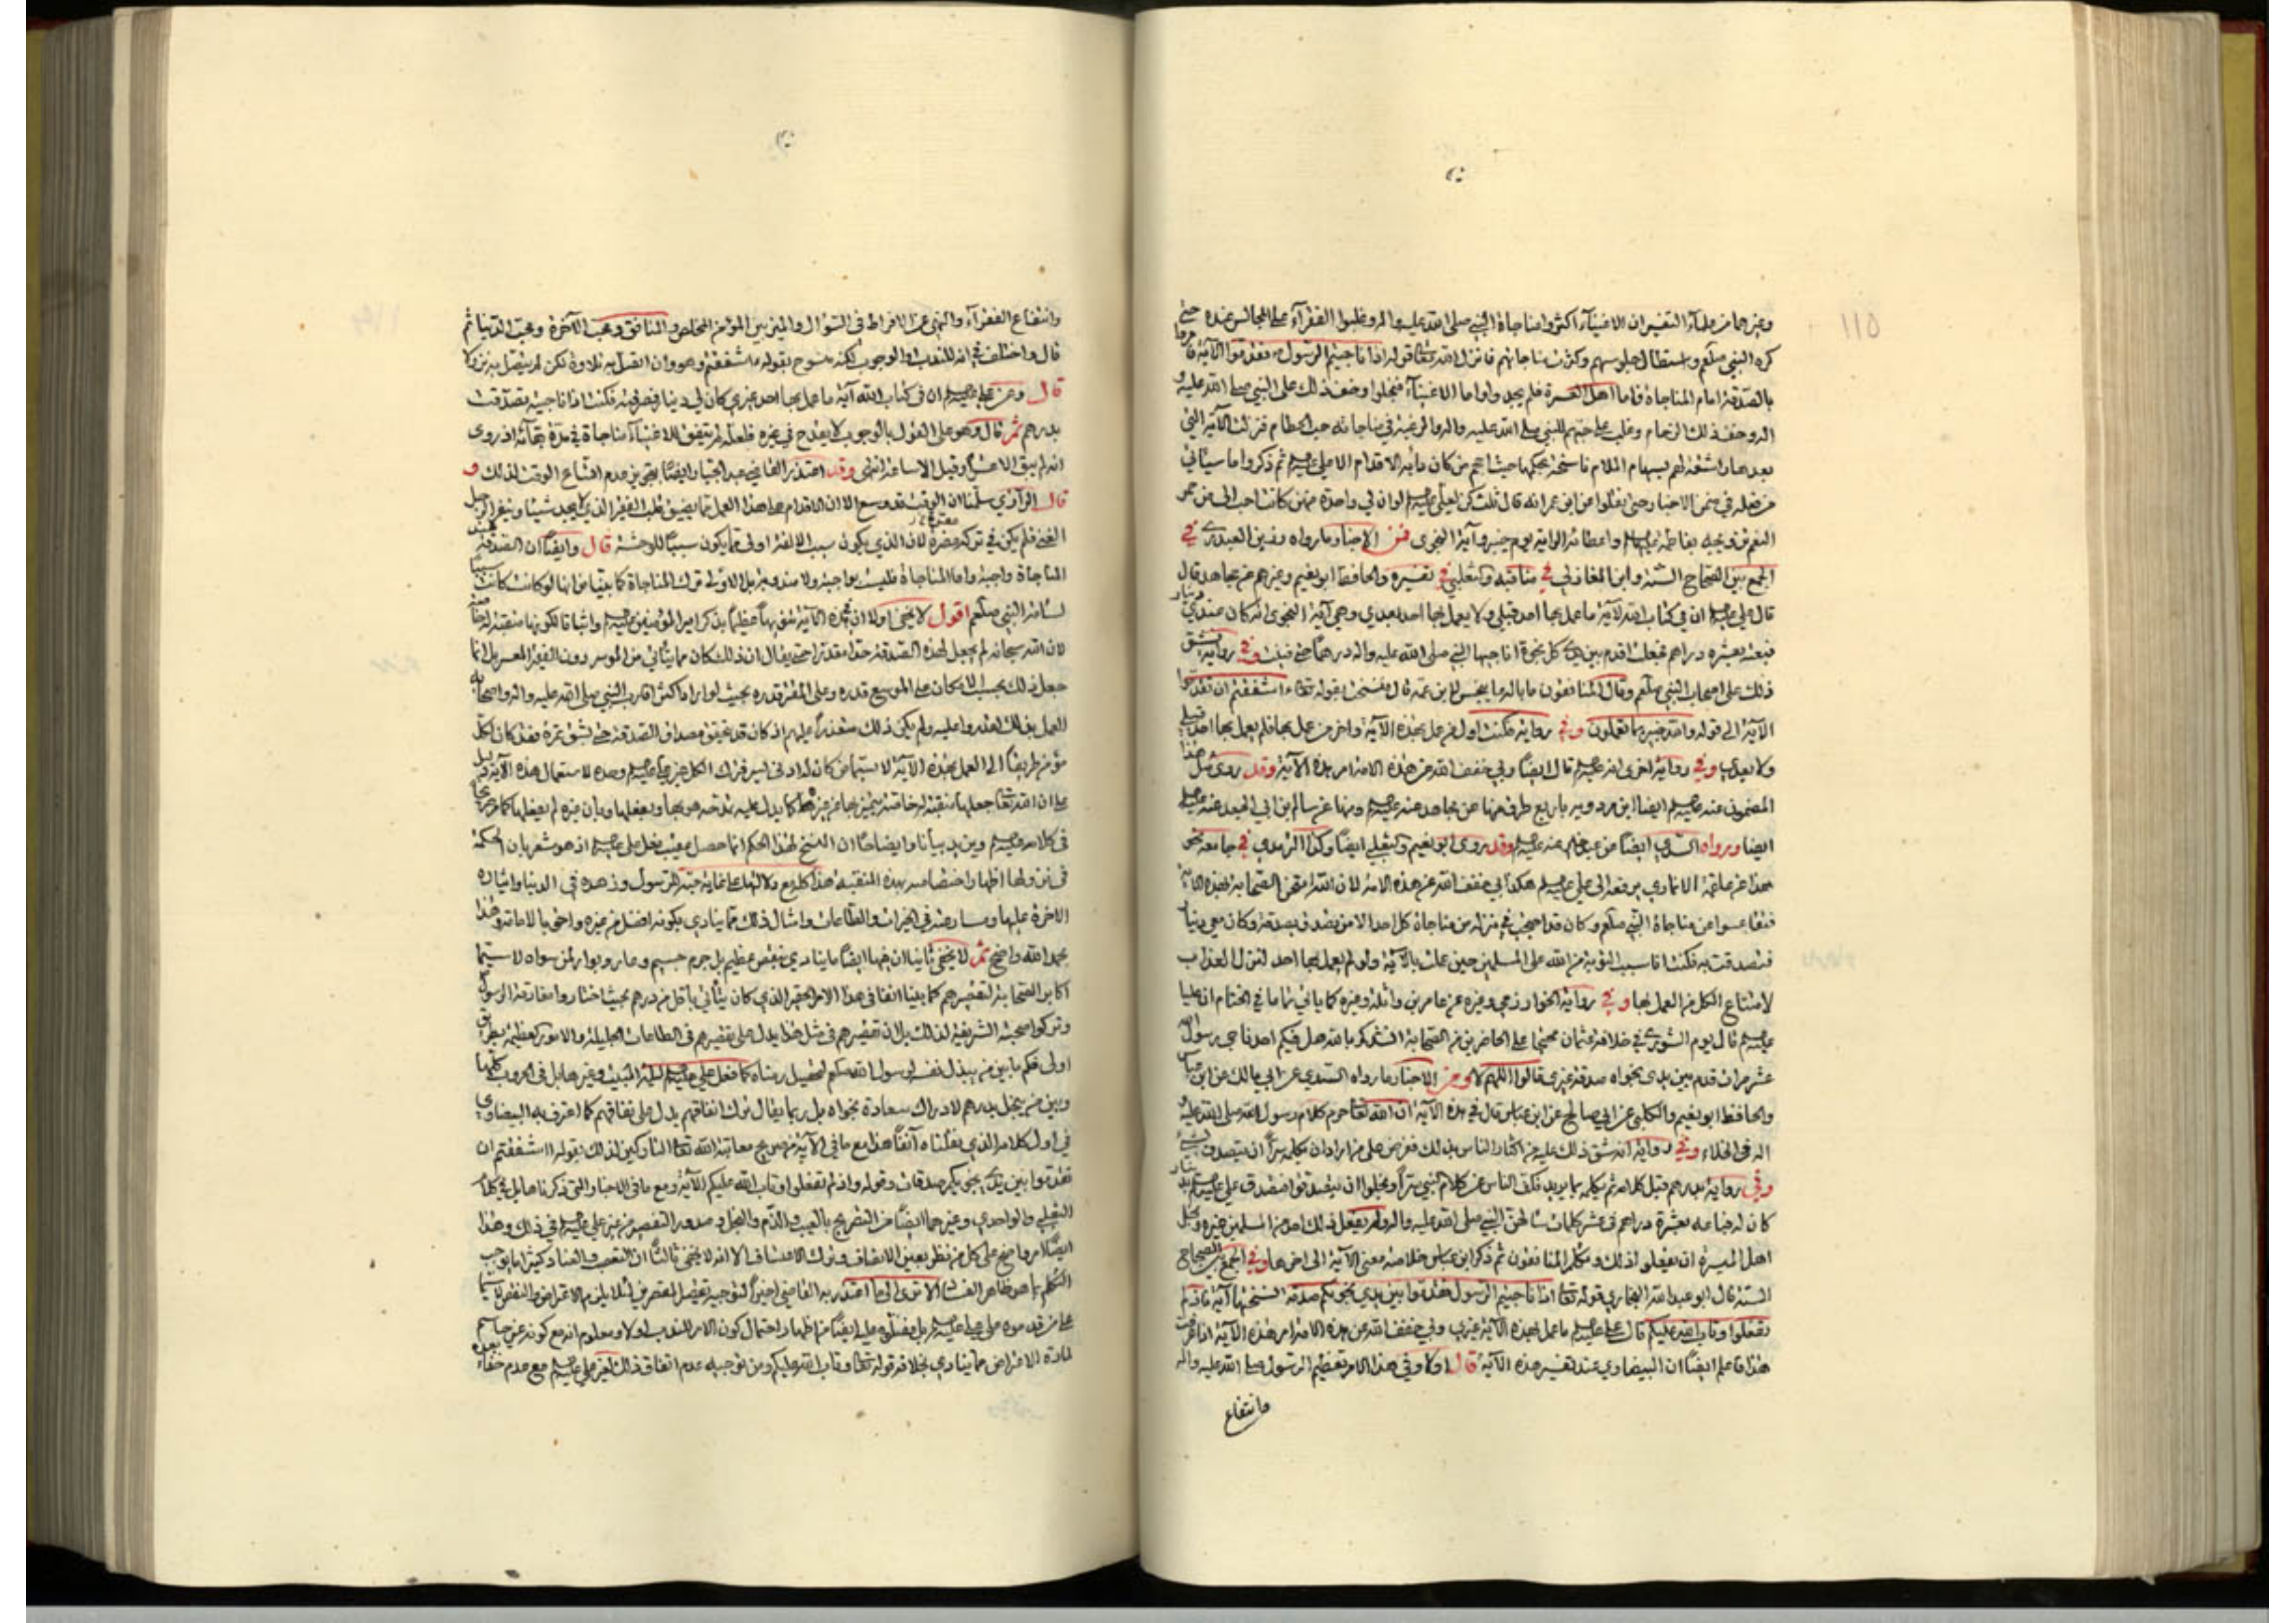 وغيرهما من علماء التفسير ان الاغنياء اكثروا مناجاة النبي صلى الله عليه واله وغلبوا الفقراء على المجالس عنده حتى
كره النبي صلعم واستطال جلوسهم وكثرت مناجاتهم فانزل الله تعالى قوله اذا ناجيتم الرسول فقدموا الآية فامروا
بالصدقة امام المناجاة فاما اهل العسرة فلم يجدوا واما الاغنياء فبخلوا وخف ذلك على النبي صلى الله عليه و
اله وخف ذلك الزحام وغلب على حبهم للنبي صلى الله عليه واله والرغبة في مناجاته حب الحطام فنزلت الآية التي
بعدها راشقة لهم بسهام الملام ناسخة بحكمها حيث احجم من كان دأبه الاقدام الا علي ثم ذكروا ما سيأتي
من فعله في ضمن الاخبار وحتى نقلوا عن ابن عمر انه قال ثلث كن لعلي لو ان لي واحدة منهن كانت احب الى من حمر
النعم تزويجه بفاطمة واعطائه الراية يوم خيبر وآية النجوى فمن الاخبار ما رواه رزين العبدري في
الجمع بين الصحاح الستة وابن المغازلي في مناقبه والثعلبي في تفسيره والحافظ ابو نعيم وغيرهم عن مجاهد قال
قال علي ان في كتاب الله لآية ما عمل بها احد قبلي ولا يعمل بها احد بعدي وهي آية النجوى انه كان عندي دينار
فبعته بعشرة دراهم فجعلت اقدم بين يدي كل نجوة اناجيها النبي صلى الله عليه واله درهما حتى فنيت وفي رواية فشق
ذلك على اصحاب النبي صلعم وقال المنافقون ما باله ما ينجس لابن عمه قال فنسخت بقوله تعالى ءاشفقتم ان تقدموا
الآية الى قوله والله خبير بما تعملون وفي رواية فكنت اول من عمل بهذه الآية واخر من عمل بها فلم يعمل بها احد قبلي
ولا بعدي وفي رواية اخرى انه قال ايضا وبي خفف الله عن هذه الامة امر هذه الآية وقد روى مثل هذا
المضمون عنه ايضا ابن مردويه باربع طرق منها عن مجاهد عنه ومنها عن سالم بن ابي الجعد عنه
ايضا ورواه السدي ايضا عن عبد خير عنه وقد روى ابو نعيم والثعلبي ايضا وكذا الترمذي في جامعه نحو
هذا عن علقمة الانماري يرفعه الى علي هكذا بي خفف الله عن هذه الامة لان الله امتحن الصحابة بهذه الآية
فتقاعسوا عن مناجاة النبي صلعم وكان قد احتجب في منزله من مناجاة كل احد الا من تصدق بصدقة وكان معي دينار
فتصدقت به فكنت انا سبب التوبة من الله على المسلمين حين عملت بالآية ولو لم يعمل بها احد لنزل العذاب
لامتناع الكل من العمل بها وفي رواية الخوارزمي وغيره عن عامر بن واثلة وغيره كما يأتي تماما في الختام ان عليا
قال يوم الشورى في خلافة عثمان محتجا على الحاضرين من الصحابة انشدكم بالله هل فيكم احد ناجى رسول الله
عشر مرات قدم بين يدي نجواه صدقة غيري قالوا اللهم لا ومن الاخبار ما رواه السدي عن ابي مالك عن ابن عباس
والحافظ ابو نعيم والكلبي عن ابي صالح عن ابن عباس قال في هذه الآية ان الله تعالى حرم كلام رسول الله صلى الله عليه و
اله في الخلاء وفي رواية انه شق ذلك عليه من اكثار الناس بذلك ففرض على من اراد ان يكلمه سرا ان يتصدق بشيء
وفي رواية بدرهم قبل كلامه ثم يكلمه بما يريد فكف الناس عن كلام النبي سرا وبخلوا ان يتصدقوا فتصدق علي بدينار
كان له فباعه بعشرة دراهم في عشر كلمات سألهن النبي صلى الله عليه واله ولم يفعل ذلك احد من المسلمين غيره وبخل
اهل الميسرة ان يفعلوا ذلك وتكلم المنافقون ثم ذكر ابن عباس خلاصة معنى الآية الى اخرها وفي الجمع بين الصحاح
الستة قال ابو عبد الله البخاري قوله تعالى اذا ناجيتم الرسول فقدموا بين يدي نجويكم صدقة نسختها آية فاذ لم
تفعلوا وتاب الله عليكم قال علي ما عمل بهذه الآية غيري وبي خفف الله عن هذه الامة امر هذه الآية اذا عرفت
هذا فاعلم ايضا ان البيضاوي عند تفسير هذه الآية قال اولا وفي هذا الامر تعظيم الرسول صلى الله عليه واله
وانتفاع
وانتفاع الفقراء والنهي عن الافراط في السؤال والميز بين المؤمن المخلص والمنافق ومحب الآخرة ومحب الدنيا ثم
قال واختلف في انه للندب او للوجوب لكنه منسوخ بقوله ءاشفقتم وهو وان اتصل به تلاوة لكن لم يتصل به نزولا
قال وعن علي ان في كتاب الله آية ما عمل بها احد غيري كان لي دينار فصرفته فكنت اذا ناجيته تصدقت
بدرهم ثم قال وهو على القول بالوجوب لا يقدح في غيره فلعله لم يتفق للاغنياء مناجاة في مدة بقائه اذ روى
انه لم يبق الا عشرا وقيل الا ساعة انتهى وقد اعتذر القاضي عبد الجبار ايضا بنحو من عدم اتساع الوقت لذلك و
قال الرازي سلمنا ان الوقت قد وسع الا ان الاقدام على هذا العمل مما يضيق قلب الفقير الذي لا يجد شيئا وينفر الرجل
الغني فلم يكن في تركه مضرة لان الذي يكون سبب الالفة اولى مما يكون سببا للوحشة قال وايضا ان الصدقة عند
المناجاة واجبة واما المناجاة فليست بواجبة ولا مندوبة بل الاولى ترك المناجاة كما بينا من انها لو كانت كانت سببا
لسأمة النبي صلعم اقول لا يخفى اولا ان في هذه الآية تنويها عظيما بذكر امير المؤمنين واثباتا لكونها منقبة له خاصة
لان الله سبحانه لم يجعل لهذه الصدقة حدا مقدرا حتى يقال ان ذلك كان مما يتأتى من الموسر دون الفقير المعسر بل انما
جعل ذلك بحسب الامكان على الموسع قدره وعلى المقتر قدره بحيث لو اراد اكثر اقارب النبي صلى الله عليه واله واصحابه
العمل بذلك لقدروا عليه ولم يكن ذلك متعذرا عليهم اذ كان قد تحقق مصداق الصدقة حتى بشق تمرة فقد كان لكل
مؤمن طريقا الى العمل بهذه الآية لا سيما من كان له ادنى ايسر فترك الكل غير علي وحده لاستعمال هذه الآية دليل
على ان الله تعالى جعلها منقبة له خاصة يتميز بها عن غيره كما يدل عليه تمدحه هو بها وبفعلها وبان غيره لم يفعلها كما مر
في كلامه ويزيد بيانا وايضاحا ان النسخ لهذا الحكم انما حصل عقيب فعل علي اذ هو مشعر بان الحكمة
في نزولها اظهار اختصاصه بهذه المنقبة هذا كله مع دلالتها على غاية حبه للرسول وزهده في الدنيا وايثاره
الاخرة عليها ومسارعته في الخيرات والطاعات وامثال ذلك مما ينادي بكونه افضل من غيره واحق بالامامة وهذا
بحمد الله واضح ثم لا يخفى ثانيا ان فيها ايضا ما ينادي بنقص عظيم بل جرم جسيم وعار وبوار لمن سواه لا سيما
اكابر الصحابة لتقصيرهم كما بينا انفا في هذا الامر الحقير الذي كان يتأتى باقل من درهم بحيث اختاروا مفارقة الرسول
وتركوا صحبته الشريفة لذلك بل ان تقصيرهم في مثل هذا يدل على تقصيرهم في الطاعات الجليلة والامور العظيمة بطريق
اولى فكم ما بين من يبذل نفسه لرسول الله صلعم لتحصيل رضاه كما فعل علي ليلة المبيت وغيرها بل في الحروب كلها
وبين من يبخل بدرهم لادراك سعادة نجواه بل ربما يقال ترك انفاقهم يدل على نفاقهم كما اعترف به البيضاوي
في اول كلامه الذي نقلناه آنفا هذا مع ما في الآية من صريح معاتبة الله تعالى التاركين لذلك بقوله ءاشفقتم ان
تقدموا بين يدي نجويكم صدقات وقوله واذ لم تفعلوا وتاب الله عليكم الآية ومع ما في الاخبار التي ذكرناها بل في كلام
الثعلبي والواحدي وغيرهما ايضا من التصريح بالعيب والذم والبخل وصدور التقصير من غير علي في ذلك وهذا
ايضا امر واضح على كل من نظر بعين الانصاف وترك الاعتساف الا انه لا يخفى ثالثا ان التعصب والعناد كثيرا ما يوجب
التكلم بما هو ظاهر الفساد الا ترى الى ما اعتذر به القاضي اخيرا لتوجيه تفضيل المقصرين لئلا يلزم الاعتراض والنقص لا سيما
على من قدموه على علي بل فضلوه عليه ايضا من اظهار احتمال كون الامر للندب اولا ومعلوم انه مع كونه غير حاسم
لمادة الاعتراض مما ينادي بخلافه قوله تعالى وتاب الله عليكم ومن توجيه عدم اتفاق ذلك لغير علي مع عدم خفاء بعده